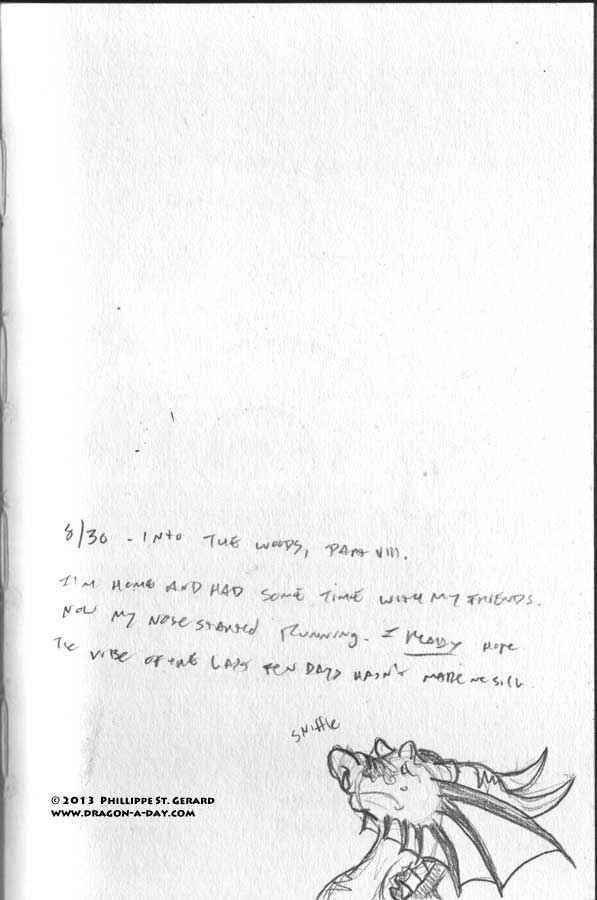 8/30 - Into the woods, Part VIII.
I'm home and had some time with my friends.
Now my nose started running. I really hope
the vibe of the last ten days hasn't made me sick.
sniffle
© 2013 Phillippe St. Gerard
www.dragon-a-day.com